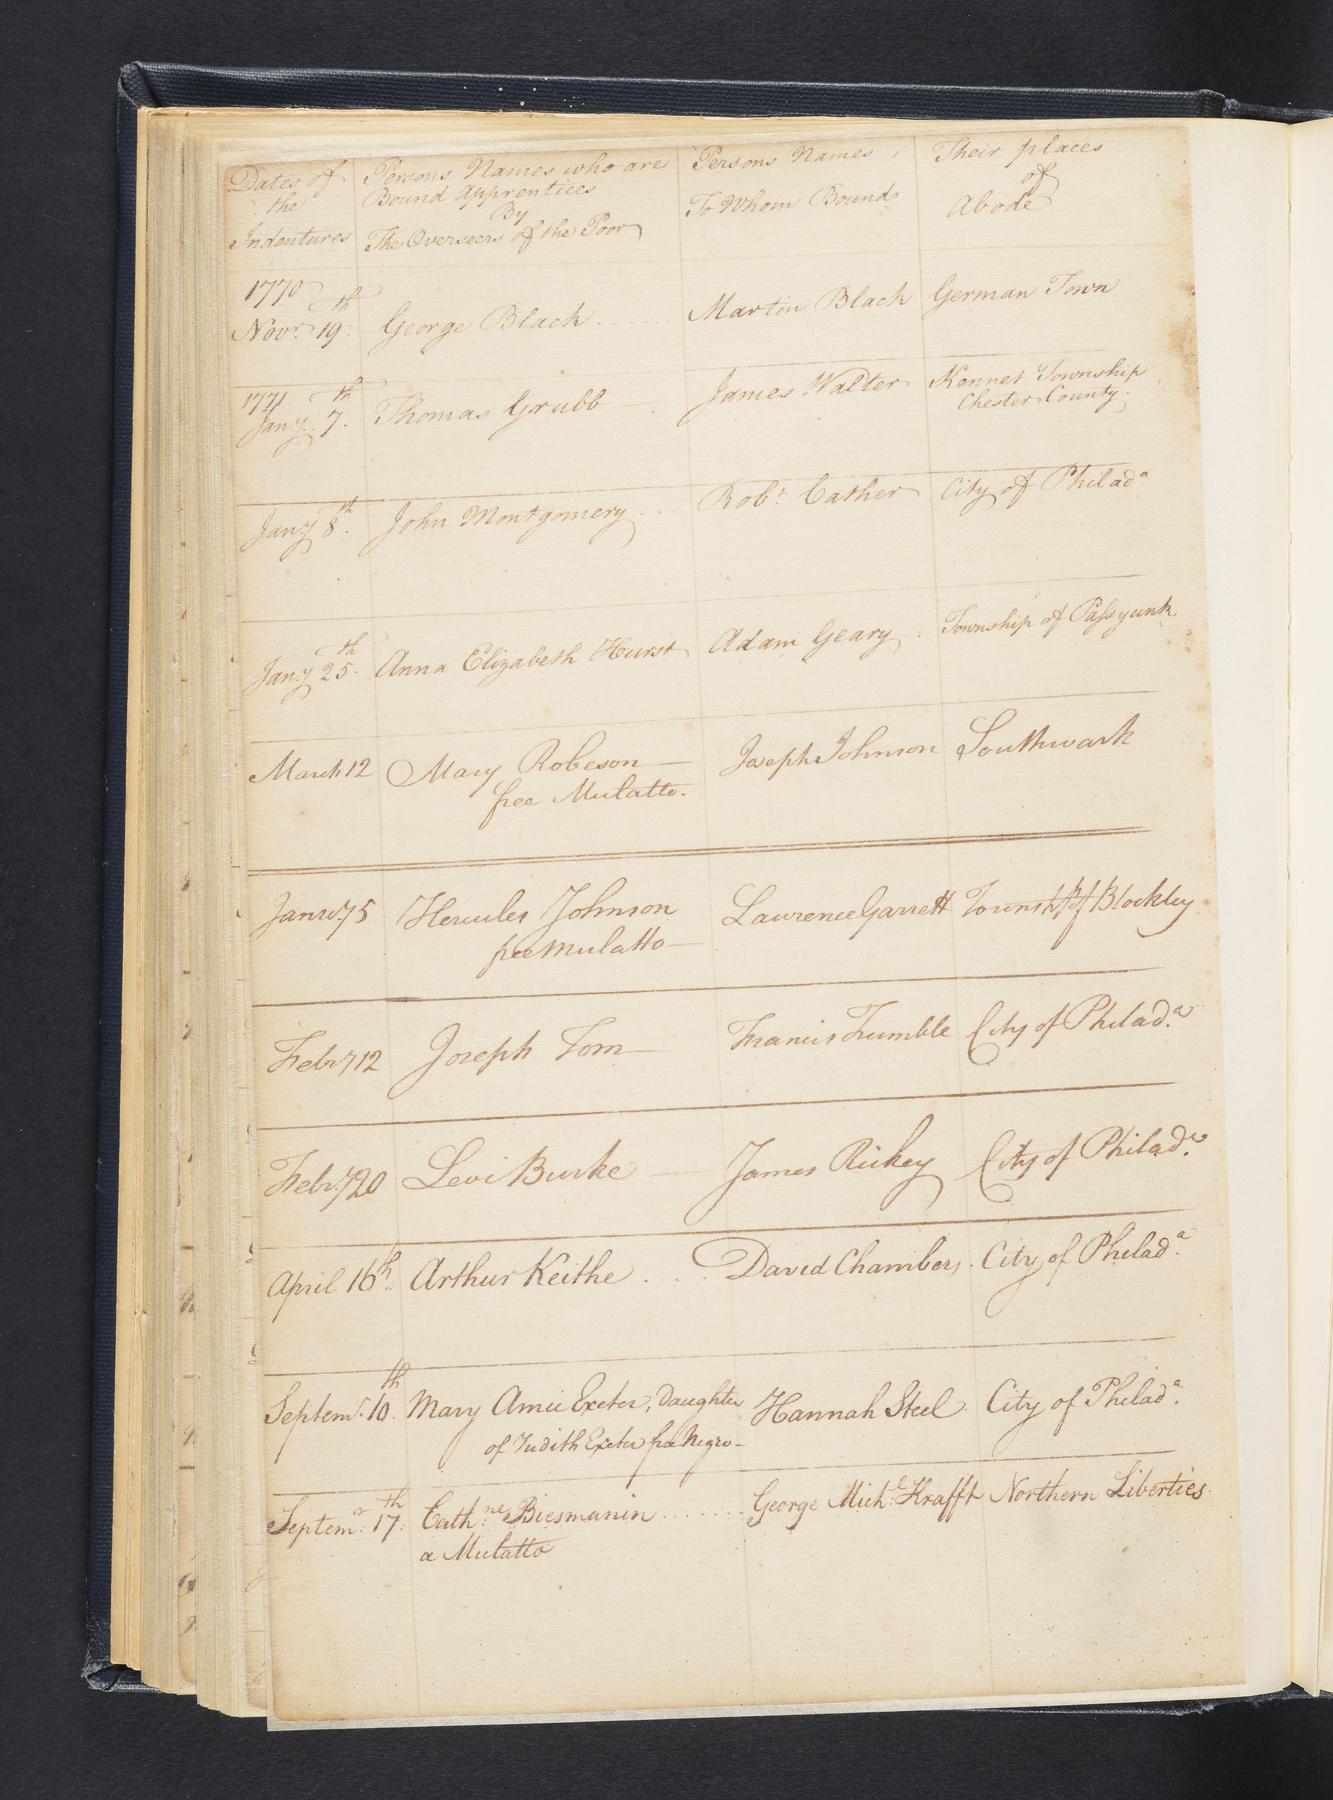 Dates of the Indentures | Persons Names who are Bound Apprentices By The Overseers of the Poor | Persons Names To Whom Bound | Their places of Abode
1770
Novr. 19th. George Black ...... Martin Black German Town
1771
Jany. 7th. Thomas Grubb James Walter Kennet Township
Chester County.
Jany 8th. John Montgomery ... Robt. Cather City of Philada
Jany 25th. Anna Elizabeth Hurst Adam Geary Township of Passyunk
March 12 Mary Robeson — Joseph Johnson Southwark
free Mulatto.
Janry 5 Hercules Johnson Lawrence Garrett Townsh.p of Blockley
free Mulatto —
Febry 12 Joseph Tom — Francis Trumble City of Philad.a
Febry 20 Levi Burke — James Rickey City of Philad.a
April 16th. Arthur Keithe ... David Chambers. City of Philad.a
Septemr. 10th. Mary Amie Exeter, Daughter Hannah Steel City of Philad.a
of Judith Exeter free Negro —
Septemr. 17th. Cath.ne Biesmanin ...... George Mich.l Krafft Northern Liberties.
a Mulatto